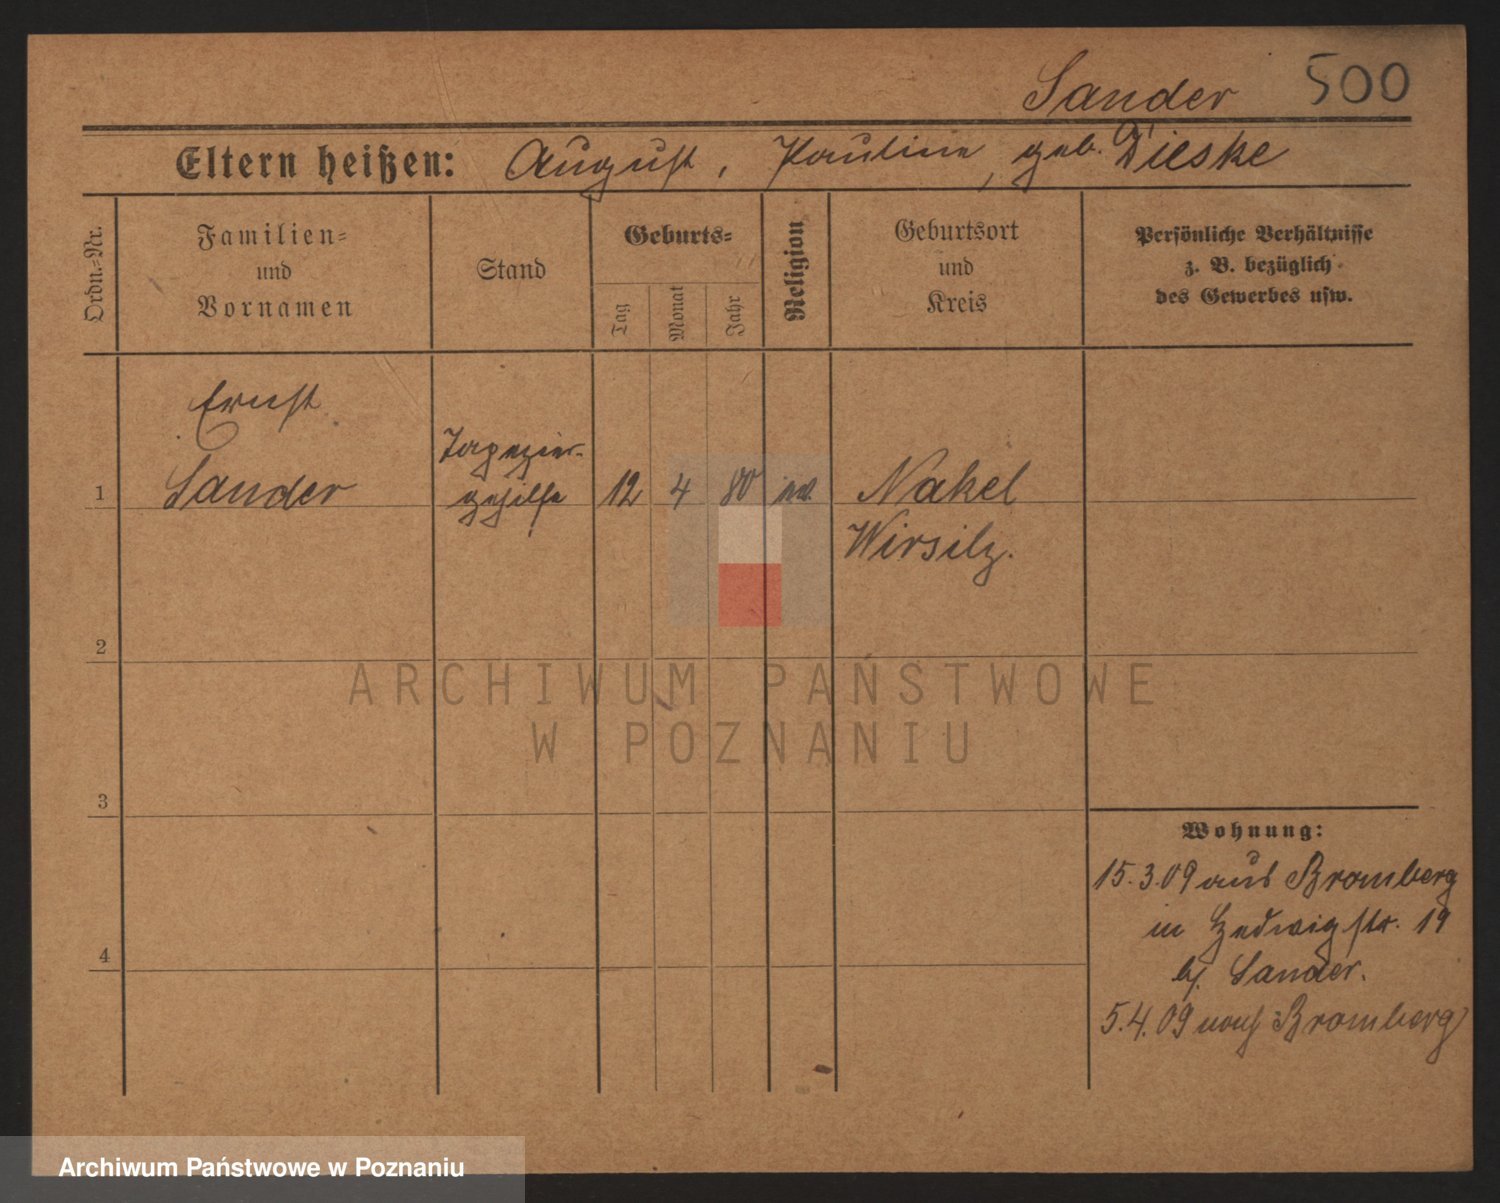 Sander 500
Eltern heißen: August, Pauline, geb. Dieske
Ordn.-Nr.
Familien-
und
Vornamen
Stand
Geburts-
Tag
Monat
Jahr
Religion
Geburtsort
und
Kreis
Persönliche Verhältnisse
z. B. bezüglich
des Gewerbes usw.
Ernst
Sander
Tapezier-
gehilfe
1 12 4 80
Nakel
Wirsitz.
2
3
4
ARCHIWUM PAŃSTWOWE
W POZNANIU
Wohnung:
15.3.09 aus Bromberg
in Hedwigstr. 19
b/. Sander.
5.4.09 nach Bromberg
Archiwum Państwowe w Poznaniu